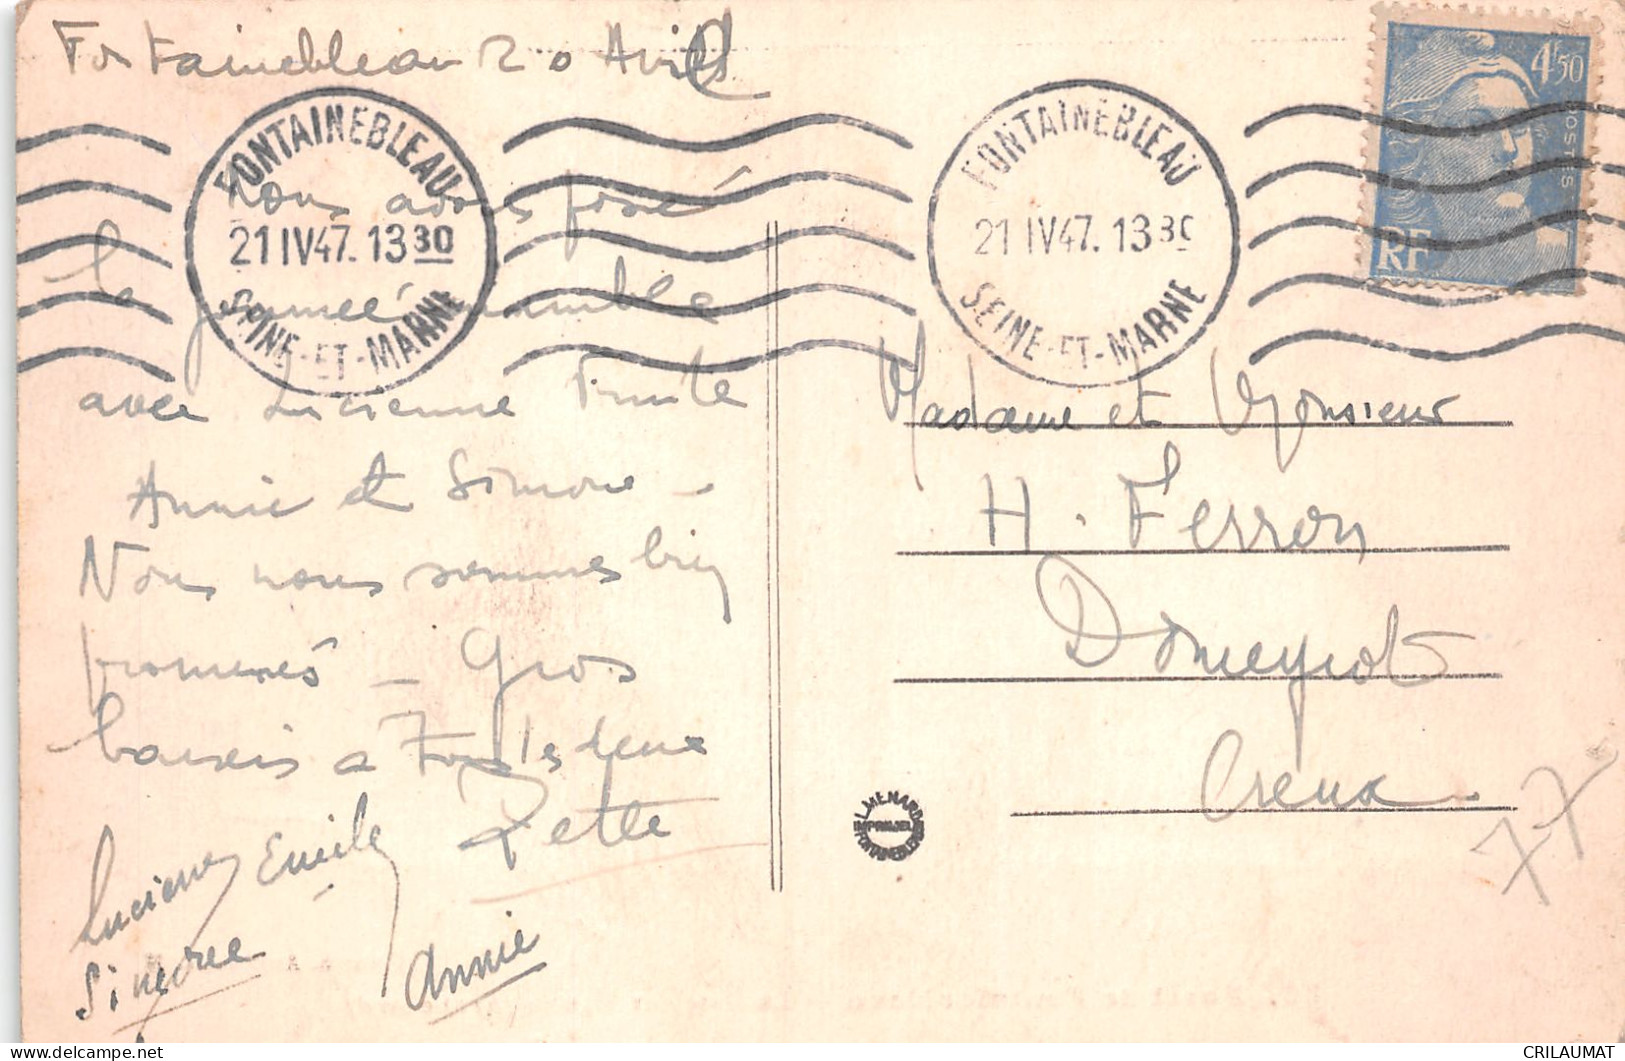 Fontainebleau 20 Avril
FONTAINEBLEAU
21 IV 47. 13 30
SEINE-ET-MARNE
FONTAINEBLEAU
21 IV 47. 13 30
SEINE-ET-MARNE
4F50
POSTES
RF
nous avons passé
la journée ensemble
avec Lucienne
Annie et Simone -
Nous nous sommes bien
promenés - Gros
baisers a tous les deux
Lucienne Emile
Annie
Madame et Monsieur
H. Ferron
Domeyrot
Creuse
L. MENARD
FONTAINEBLEAU
77
CRILAUMAT